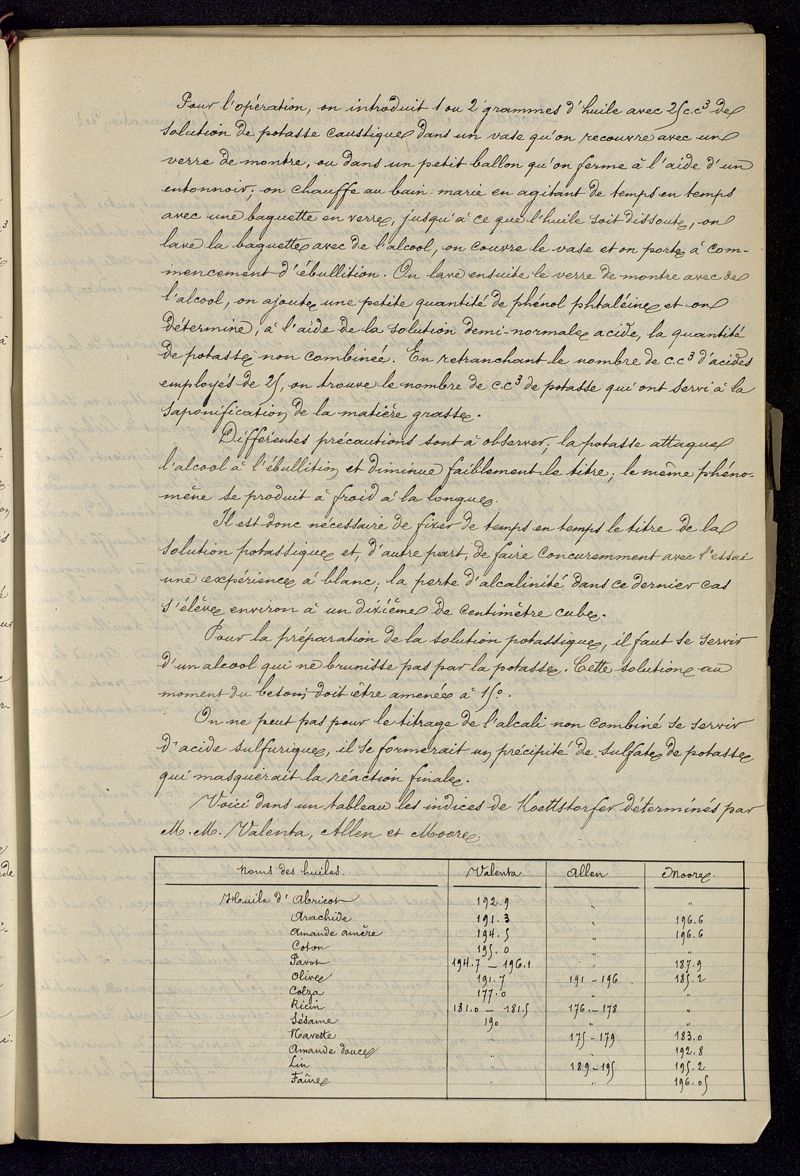 Pour l'opération, on introduit 1 ou 2 grammes d'huile avec 25 c.c³ de
solution de potasse caustique dans un vase qu'on recouvre avec un
verre de montre, ou dans un petit ballon qu'on ferme à l'aide d'un
entonnoir; on chauffe au bain-marie en agitant de temps en temps
avec une baguette en verre, jusqu'à ce que l'huile soit dissoute, on
lave la baguette avec de l'alcool, on couvre le vase et on porte à com-
mencement d'ébullition. On lave ensuite le verre de montre avec de
l'alcool, on ajoute une petite quantité de phénol phtaléine et on
détermine, à l'aide de la solution demi-normale acide, la quantité
de potasse non combinée. En retranchant le nombre de c.c³ d'acides
employés de 25, on trouve le nombre de c.c³ de potasse qui ont servi à la
saponification de la matière grasse.
Différentes précautions sont à observer; la potasse attaque
l'alcool à l'ébullition et diminue faiblement le titre; le même phéno-
mène se produit à froid à la longue.
Il est donc nécessaire de fixer de temps en temps le titre de la
solution potassique et, d'autre part, de faire concuremment avec l'essai
une expérience à blanc; la perte d'alcalinité dans ce dernier cas
s'élève environ à un dixième de centimètre cube.
Pour la préparation de la solution potassique, il faut se servir
d'un alcool qui ne brunisse pas par la potasse. Cette solution au
moment du besoin doit être amenée à 15°.
On ne peut pas pour le titrage de l'alcali non combiné se servir
d'acide sulfurique, il se formerait un précipité de sulfate de potasse
qui masquerait la réaction finale.
Voici dans un tableau les indices de Koettstorfer déterminés par
M.M. Valenta, Allen et Moore
Noms des huiles. Valenta Allen Moore.
Huile d'Abricot 192.9 " "
Arachide 191.3 " 196.6
Amande amère 194.5 " 196.6
Coton 195.0 " "
Pavot 194.7 – 196.1 " 187.9
Olive 191.7 191 – 196 185.2
Colza 177.0 " "
Ricin 181.0 – 181.5 176 – 178 "
Sésame 190 " "
Navette " 175 – 179 183.0
Amande douce " " 192.8
Lin " 189 – 195 195.2
Faîne " " 196.05